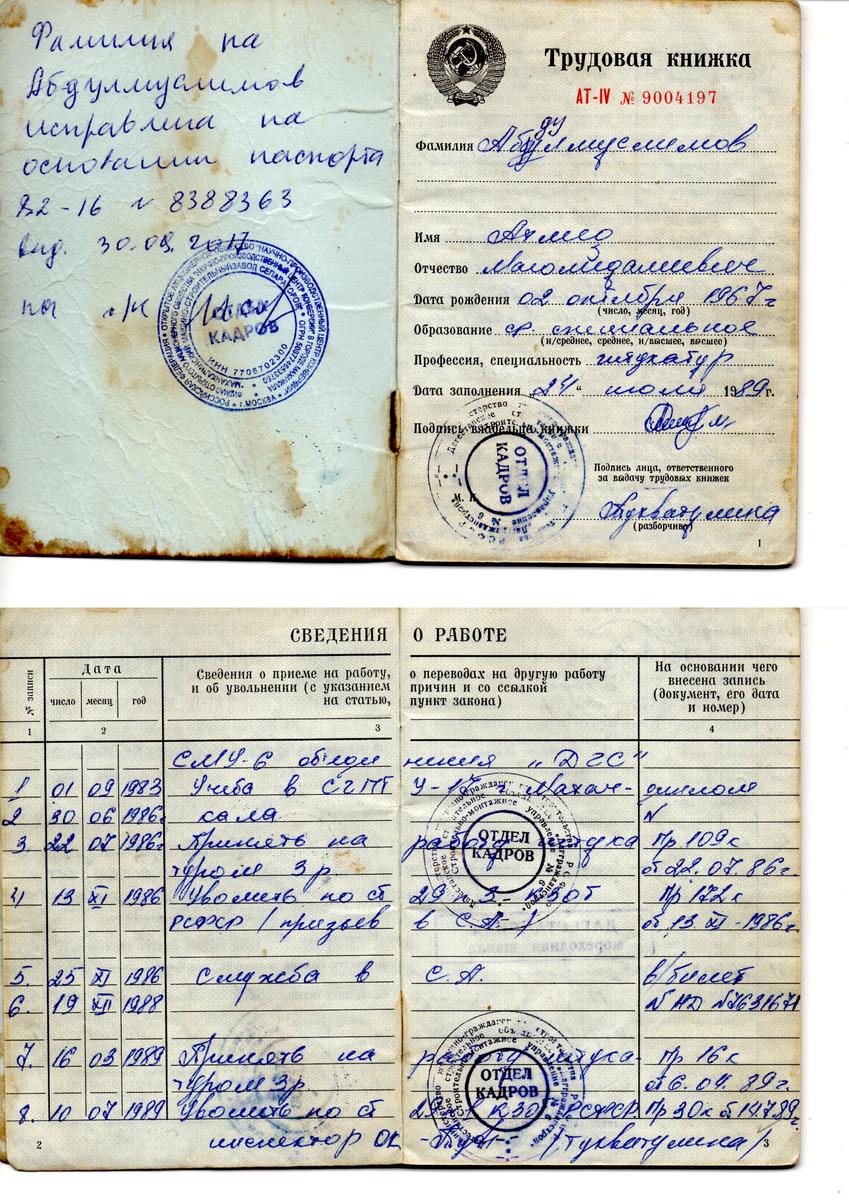 Фамилия на
Абдулмуслимов
исправлена на
основании паспорта
82-16 № 8388363
выд. 30.09.2017
ОТДЕЛ
КАДРОВ
ИНН 7706702300
Трудовая книжка
АТ-IV № 9004197
Фамилия Абдулмуслимов
Имя Ахмед
Отчество Магомедалиевич
Дата рождения 02 октября 1967г
(число, месяц, год)
Образование ср. специальное
(н/среднее, среднее, н/высшее, высшее)
Профессия, специальность штукатур
Дата заполнения „24“ июля 1989г.
Подпись владельца книжки
ОТДЕЛ
КАДРОВ
М. П.
Подпись лица, ответственного
за выдачу трудовых книжек
Тухватулина
(разборчиво)
1
СВЕДЕНИЯ О РАБОТЕ
№ записи
Дата
число месяц год
Сведения о приеме на работу, о переводах на другую работу
и об увольнении (с указанием причин и со ссылкой
на статью, пункт закона)
На основании чего
внесена запись
(документ, его дата
и номер)
1 2 3 4
СМУ-6 объединения „ДГС“
1 01 09 1983 Учеба в СГПТУ-17 г. Махач- диплом
2 30 06 1986г кала №
3. 22 07 1986г Принять на работу штука Пр 109к
туром 3 р. от 22.07.86г.
4 13 XI 1986 Уволить по ст 29 п 3 - КЗОТ Пр 172к
РСФСР / призыв в С.А. / от 13 XI - 1986г.
5. 25 XI 1986 Служба в С.А. в/билет
6. 19 XII 1988 № НД № 7631671
7. 16 03 1989 Принять на работу штука- Пр 16 к
туром 3 р. от 6.04.89г.
8. 10 07 1989 Уволить по ст КЗОТ РСФСР Пр 30к от 14789г
инспектор ОК /Тухватулина/
ОТДЕЛ
КАДРОВ
ОТДЕЛ
КАДРОВ
2 3